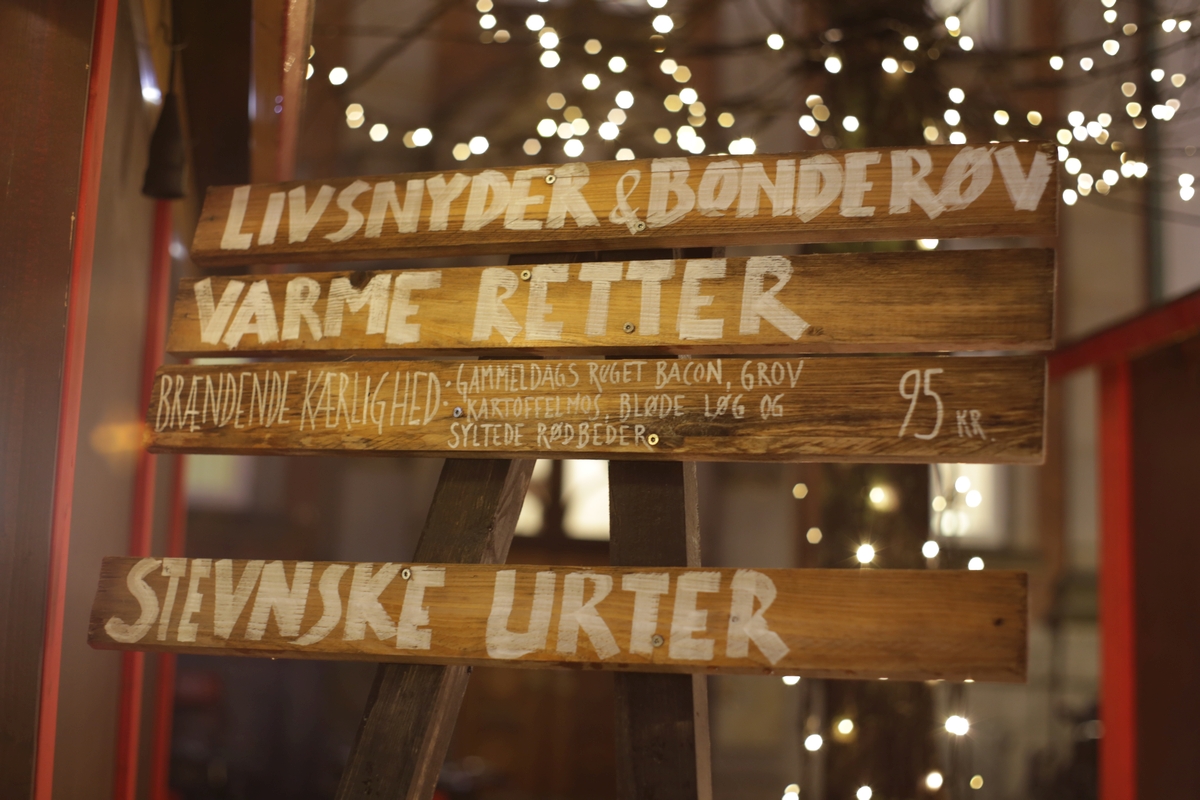 LIVSNYDER & BONDERØV
VARME RETTER
BRÆNDENDE KÆRLIGHED · GAMMELDAGS RØGET BACON, GROV
KARTOFFELMOS, BLØDE LØG OG
SYLTEDE RØDBEDER
95 KR.
STEVNSKE URTER